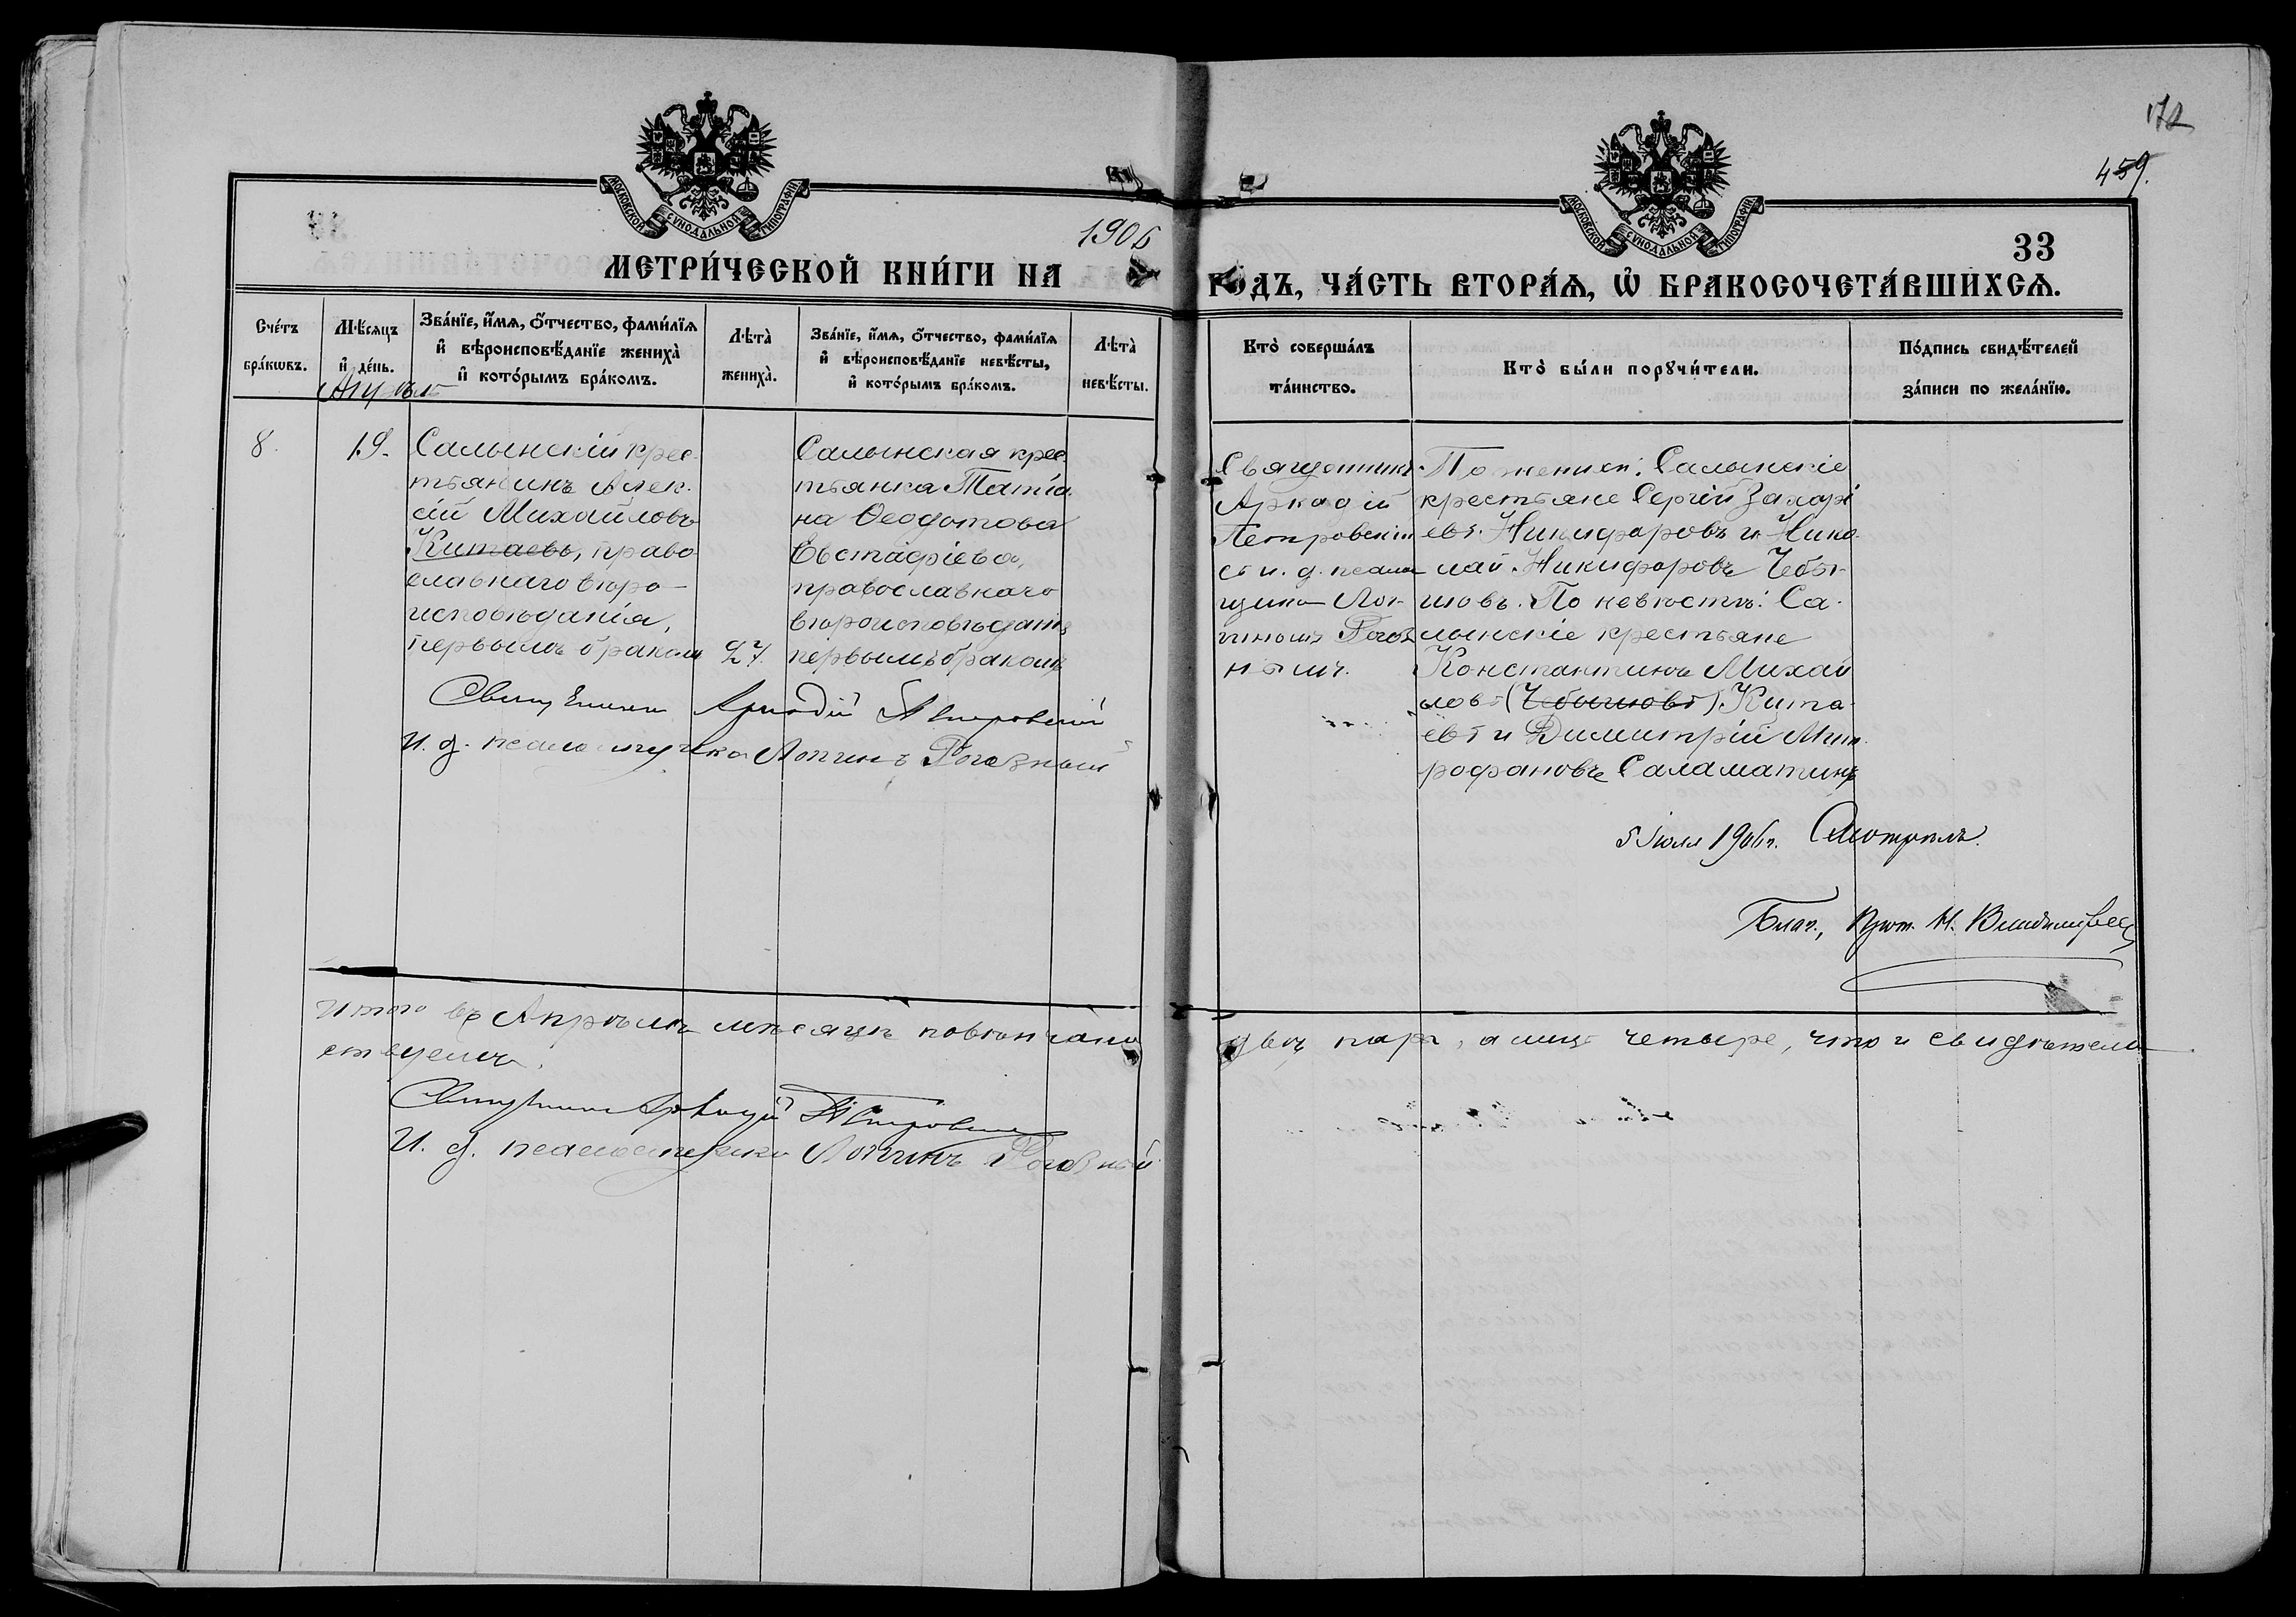 172
459.
МОСКОВСКОЙ СѴНОДАЛЬНОЙ ТИПОГРАФІИ
МОСКОВСКОЙ СѴНОДАЛЬНОЙ ТИПОГРАФІИ
1906
33
МЕТРИ́ЧЕСКОЙ КНИ́ГИ НА ГОДЪ, ЧА́СТЬ ВТОРА́Ѧ, Ѡ҆ БРАКОСОЧЕТА́ВШИХСѦ.
Сче́тъ
бра́кѡвъ.
Мѣ́сяцъ
и҆ де́нь.
Апрѣль
Зва́нїе, и҆́мѧ, ѻ҆́тчество, фами́лїѧ
и҆ вѣроисповѣ́данїе жениха̀
и҆ кото́рымъ бра́комъ.
Лѣта̀
жениха̀.
Зва́нїе, и҆́мѧ, ѻ҆́тчество, фами́лїѧ
и҆ вѣроисповѣ́данїе невѣ́сты,
и҆ кото́рымъ бра́комъ.
Лѣта̀
невѣ́сты.
Кто̀ соверша́лъ
та́инство.
Кто̀ бы́ли порꙋчи́тели.
По́дпись свидѣ́телей
за́писи по жела́нїю.
8.
19.
Салынскій крес-
тьянинъ Алек-
сій Михайловъ
Китаевъ, право
славнаго вѣро-
исповѣданія,
первымъ бракомъ
27.
Салынская крес
тьянка Татіа
на Ѳеодотова
Евстафіева,
православнаго
вѣроисповѣданія
первымъ бракомъ
Священникъ
Аркадій
Петровскій
съ и. д. псалом
щика Лог-
гиномъ Рогоз
нымъ.
По женихѣ: Салынскіе
крестьяне Сергій Захарі
евъ Никифоровъ и Нико
лай Никифоровъ Чебы-
шовъ. По невѣстѣ: Са-
лынскіе крестьяне
Константинъ Михай
ловъ (Чебышовъ) Кита-
евъ и Димитрій Мит
рофановъ Саламатинъ
Священникъ Аркадій Петровскій
И. д. псаломщика Логгинъ Рогозный
5 Іюля 1906 г. Смотрѣлъ
Благ., Прот. Н.
Итого въ Апрѣлѣ мѣсяцѣ повѣнчано двѣ пары, а лицъ четыре, что и свидѣтель
ствуемъ.
Священникъ Аркадій Петровскій
И. д. псаломщика Логгинъ Рогозный